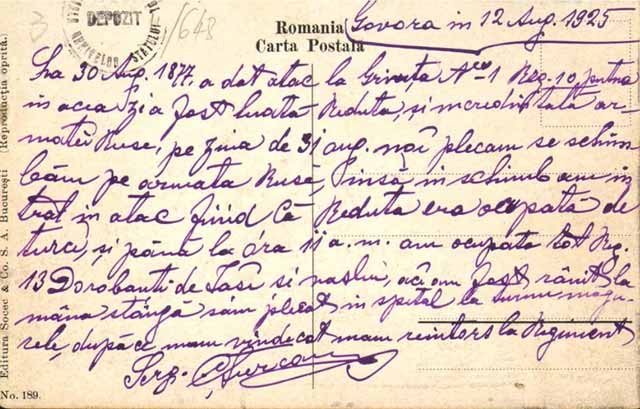 3
/648
DEPOZIT
STATULUI
Romania
Carta Postala
Govora in 12 Aug. 1925
La 30 Aug. 1877. a dat atac la Grivița No 1 Reg. 10 putna
in acea zi a fost luată Reduta, și incredințată ar-
matei Ruse, pe ziua de 31 aug. noi plecam se schim
băm pe armata Ruse, insă in schimb am in
trat in atac fiind că Reduta era ocupată de
turci, și până la óra 11 a. m. am ocupato tot Reg.
13 Dorobanti de Iasi si vaslui, aci am fost rănit la
mâna stângă sám plecat in spital la turnu măgu
rele, după ce mam vindecat mam reintors la Regiment
Serg.
Editura Socec & Co. S. A. Bucureşti (Reproducţia oprită.)
No. 189.